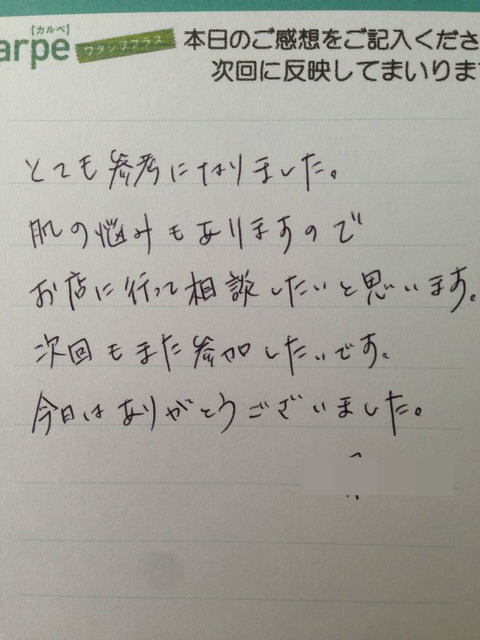 【カルペ】
arpe ワタシプラス
本日のご感想をご記入くださ
次回に反映してまいりま
とても参考になりました。
肌の悩みもありますので
お店に行って相談したいと思います。
次回もまた参加したいです。
今日はありがとうございました。